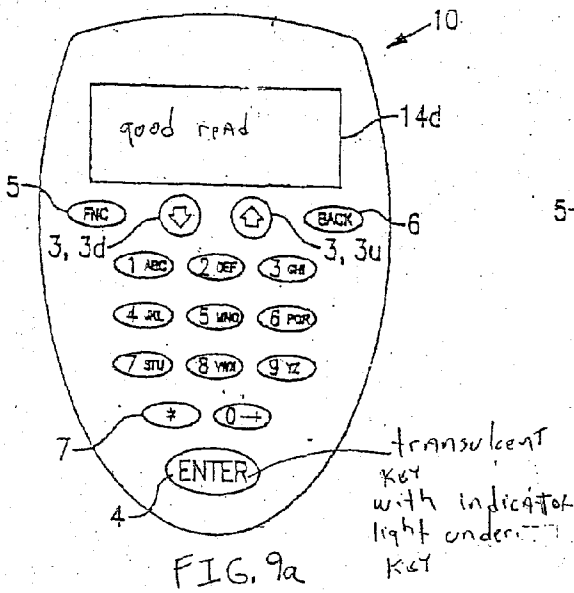 10
good read
14d
5
FNC
BACK
6
5
3, 3d
3, 3u
1 ABC
2 DEF
3 GHI
4 JKL
5 MNO
6 PQR
7 STU
8 VWX
9 YZ
7
*
0
ENTER
4
transulcent
Key
with indicator
light under
Key
FIG. 9a